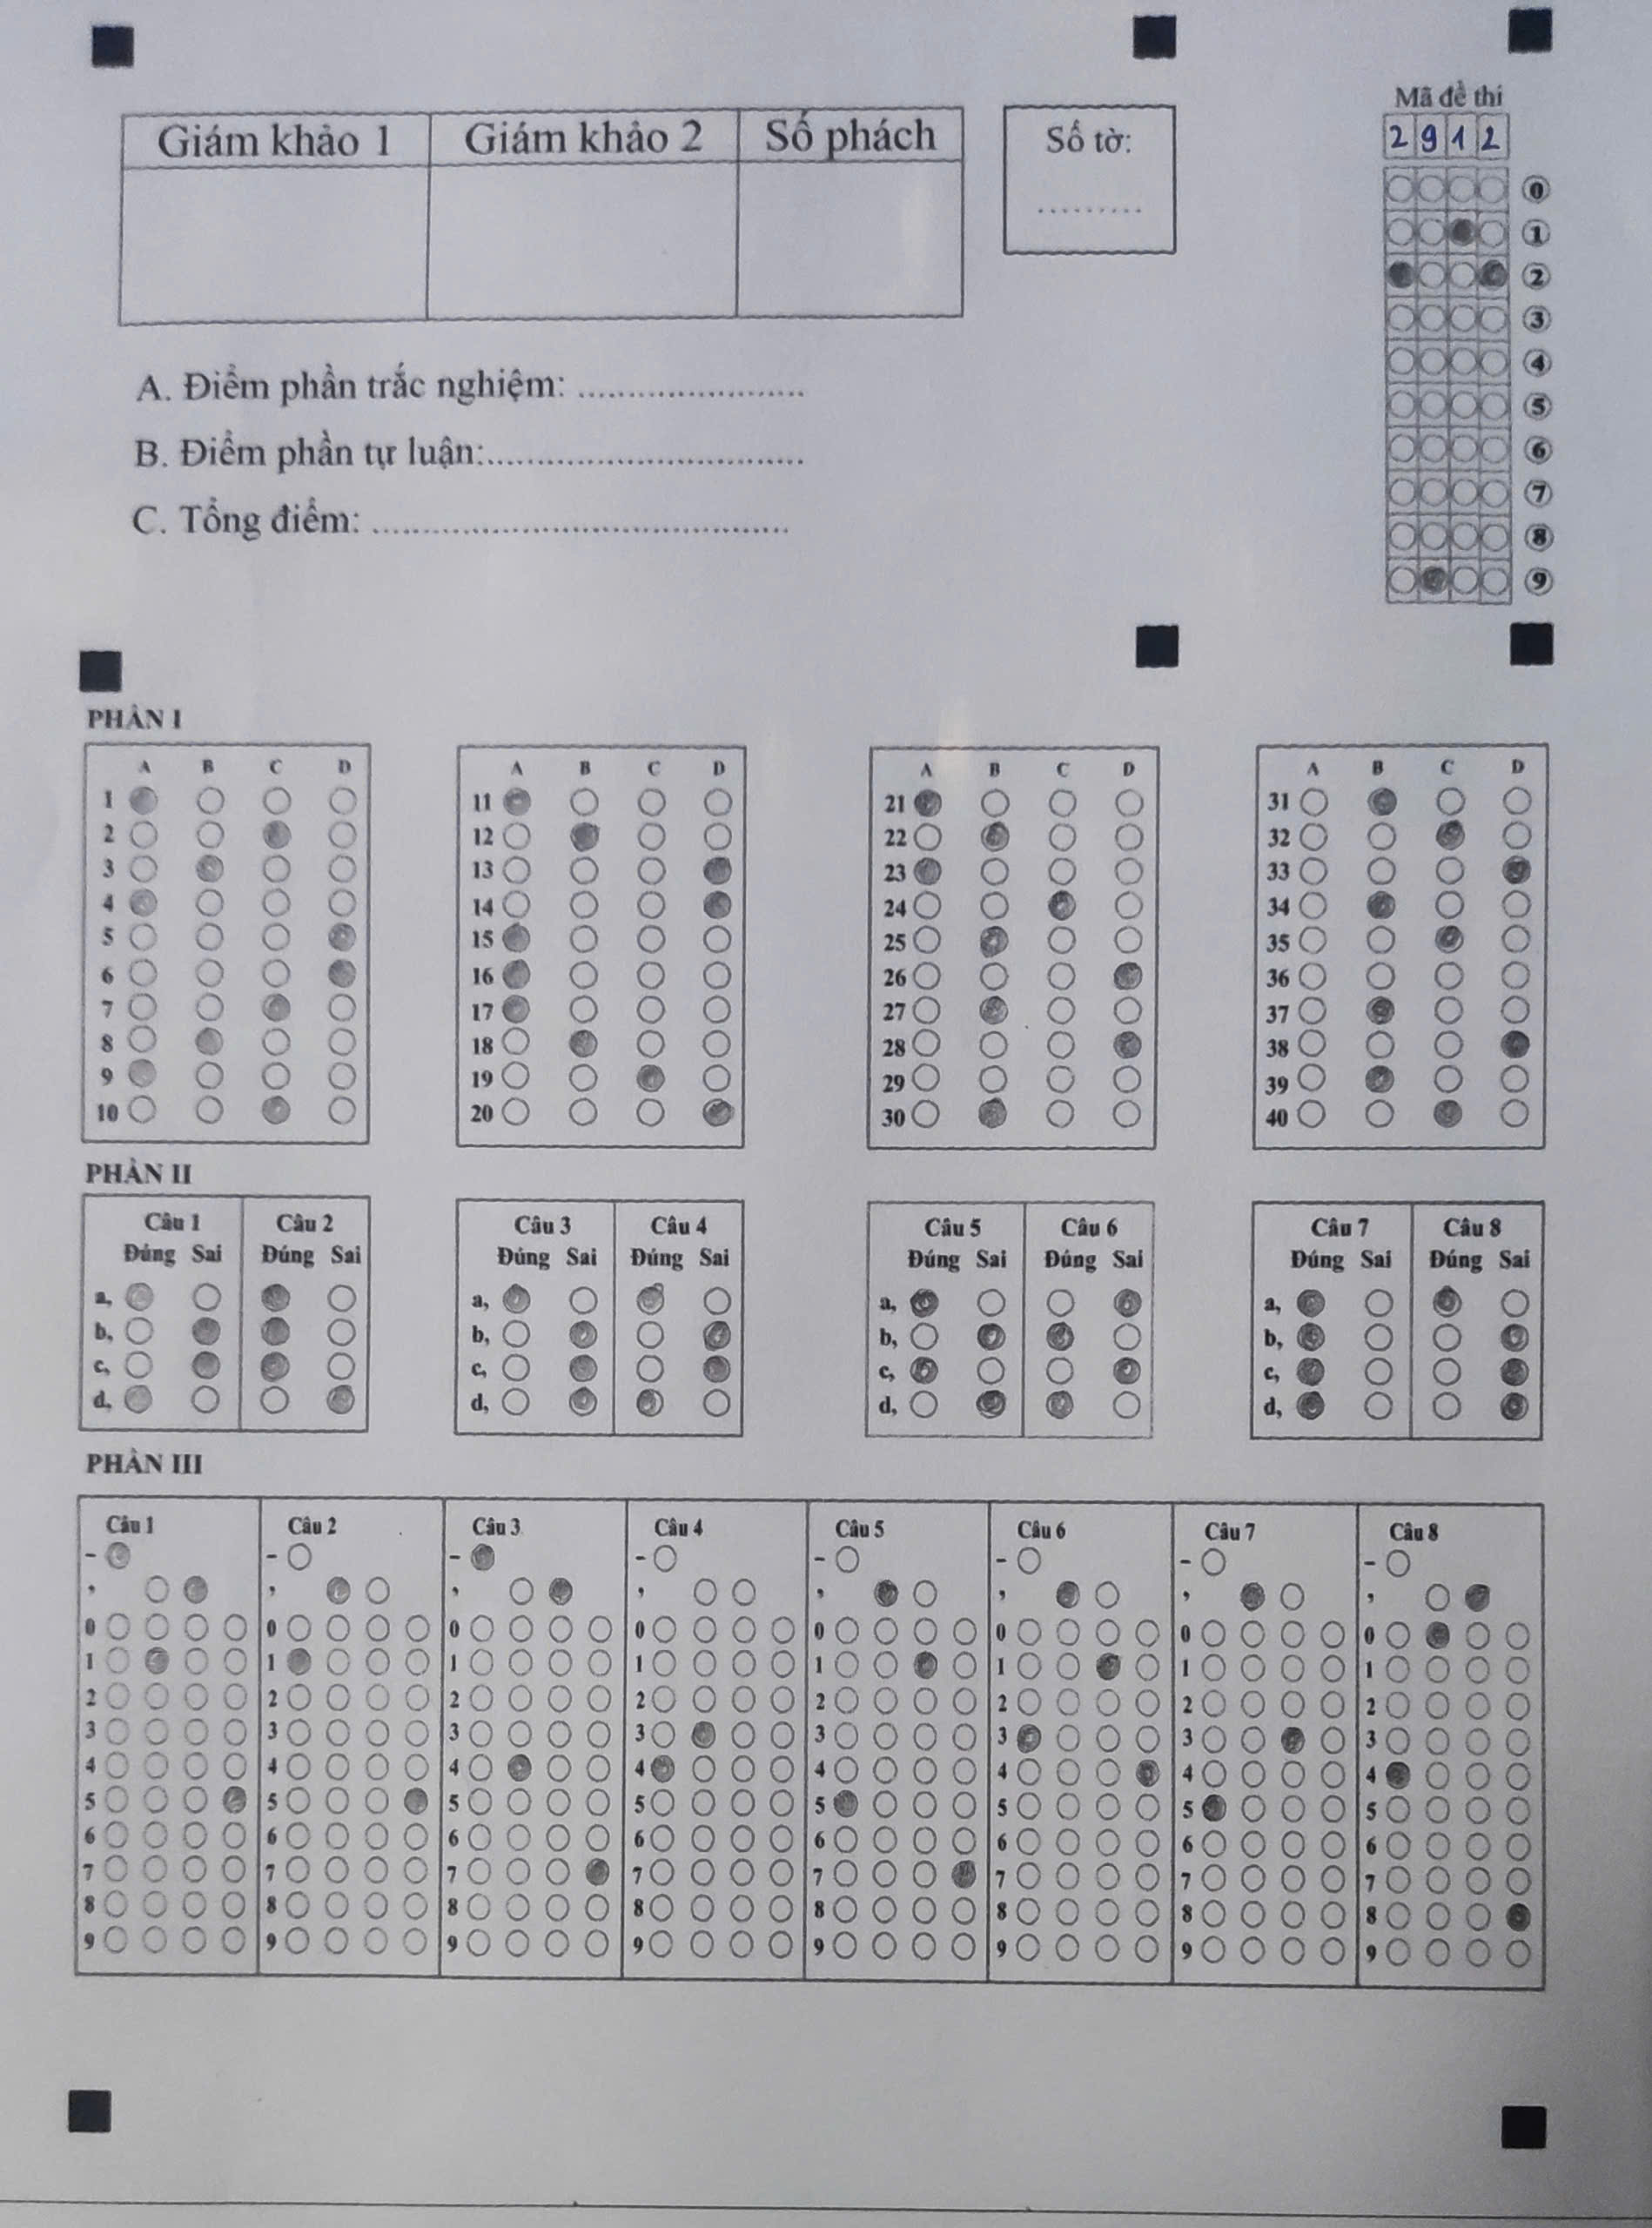 Giám khảo 1 Giám khảo 2 Số phách
Số tờ:
.........
Mã đề thi
2 9 1 2
0
1
2
3
4
5
6
7
8
9
A. Điểm phần trắc nghiệm: ......................
B. Điểm phần tự luận:...............................
C. Tổng điểm: ........................................
PHẦN I
A B C D
1
2
3
4
5
6
7
8
9
10
A B C D
11
12
13
14
15
16
17
18
19
20
A B C D
21
22
23
24
25
26
27
28
29
30
A B C D
31
32
33
34
35
36
37
38
39
40
PHẦN II
Câu 1 Câu 2
Đúng Sai Đúng Sai
a,
b,
c,
d,
Câu 3 Câu 4
Đúng Sai Đúng Sai
a,
b,
c,
d,
Câu 5 Câu 6
Đúng Sai Đúng Sai
a,
b,
c,
d,
Câu 7 Câu 8
Đúng Sai Đúng Sai
a,
b,
c,
d,
PHẦN III
Câu 1 Câu 2 Câu 3 Câu 4 Câu 5 Câu 6 Câu 7 Câu 8
- - - - - - - -
, , , , , , , ,
0 0 0 0 0 0 0 0
1 1 1 1 1 1 1 1
2 2 2 2 2 2 2 2
3 3 3 3 3 3 3 3
4 4 4 4 4 4 4 4
5 5 5 5 5 5 5 5
6 6 6 6 6 6 6 6
7 7 7 7 7 7 7 7
8 8 8 8 8 8 8 8
9 9 9 9 9 9 9 9